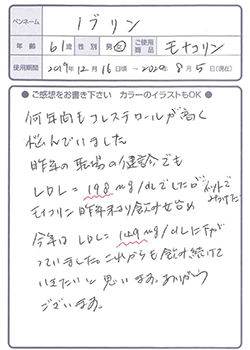 ペンネーム ノブリン
年齢 61才 性別 男・女 ご使用商品 モナコリン
使用期間 2019年12月16日頃 〜2020年8月5日(現在)
● ご感想をお書き下さい カラーのイラストもOK ●
何年間もコレステロールが高く
悩んでいました
昨年の職場の健診でも
LDL=198mg/dLでしたがネットでみつけた
モナコリン昨年末から飲み始め
今年は LDL=129mg/dLに下が
っていました。これからも飲み続けて
いきたいと思います。ありがとう
ございます。